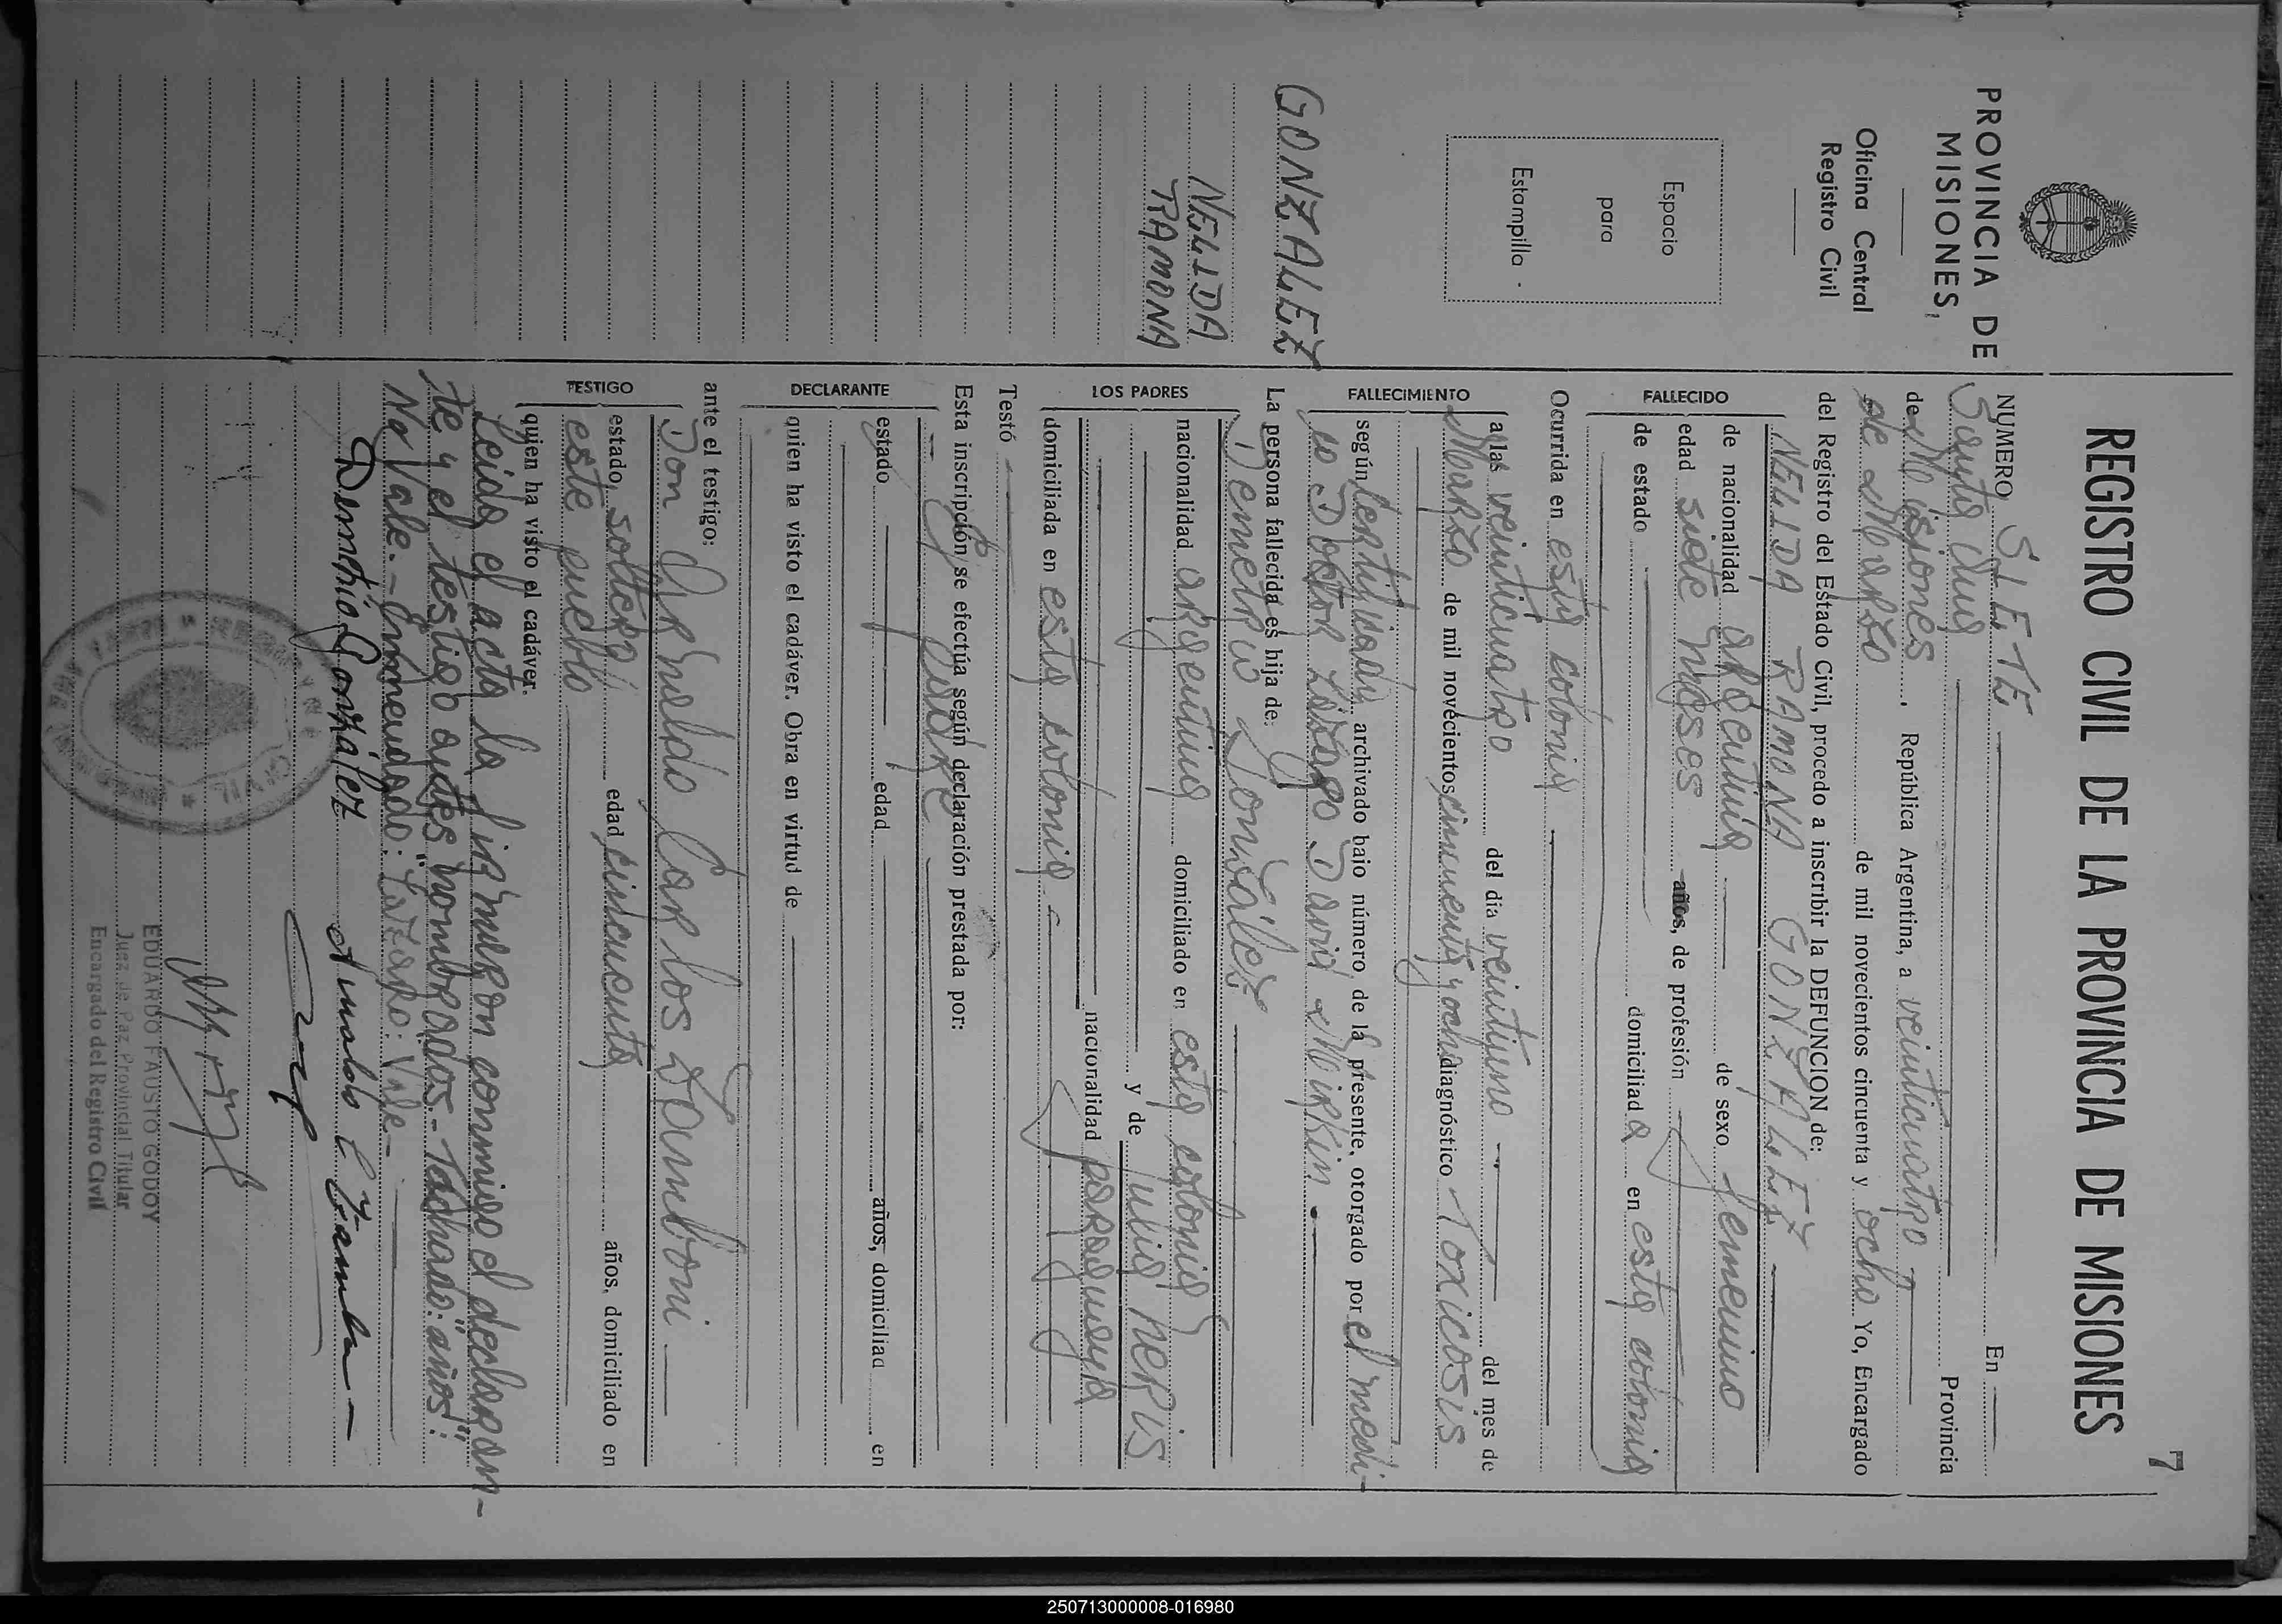 7
REGISTRO CIVIL DE LA PROVINCIA DE MISIONES
PROVINCIA DE
MISIONES,
Oficina Central
Registro Civil
Espacio
para
Estampilla
GONZALEZ
NELIDA
RAMONA
NUMERO SIETE En
Santa Ana Provincia
de Misiones, República Argentina, a veinticuatro
de Marzo de mil novecientos cincuenta y ocho Yo, Encargado
del Registro del Estado Civil, procedo a inscribir la DEFUNCION de:
FALLECIDO
NELIDA RAMONA GONZALEZ
de nacionalidad argentina de sexo femenino
edad siete meses años, de profesión
de estado domiciliad a en esta colonia
Ocurrida en esta colonia
FALLECIMIENTO
a las veinticuatro del día veintiuno del mes de
Marzo de mil novecientos cincuenta y ocho diagnóstico Toxicosis
según certificado archivado bajo número de la presente, otorgado por el médi-
co Doctor Lázaro David Mirkin.
La persona fallecida es hija de:
LOS PADRES
Demetrio González
nacionalidad argentina domiciliado en esta colonia
y de Julia Neris
nacionalidad paraguaya
domiciliada en esta colonia
Testó
Esta inscripción se efectúa según declaración prestada por:
DECLARANTE
El padre
estado edad años, domiciliad en
quien ha visto el cadáver. Obra en virtud de
ante el testigo:
TESTIGO
Don Arnoldo Carlos Zamboni
estado soltero edad cincuenta años, domiciliado en
este pueblo
quien ha visto el cadáver.
Leída el acta la firmaron conmigo el declaran-
te y el testigo antes nombrados.- Tachado: "años":
No Vale.- Enmendado: "Lázaro: Vale-
Demetrio González Arnoldo C Zamboni
REGISTRO CIVIL
EDUARDO FAUSTO GODOY
Juez de Paz Provincial Titular
Encargado del Registro Civil
250713000008-016980